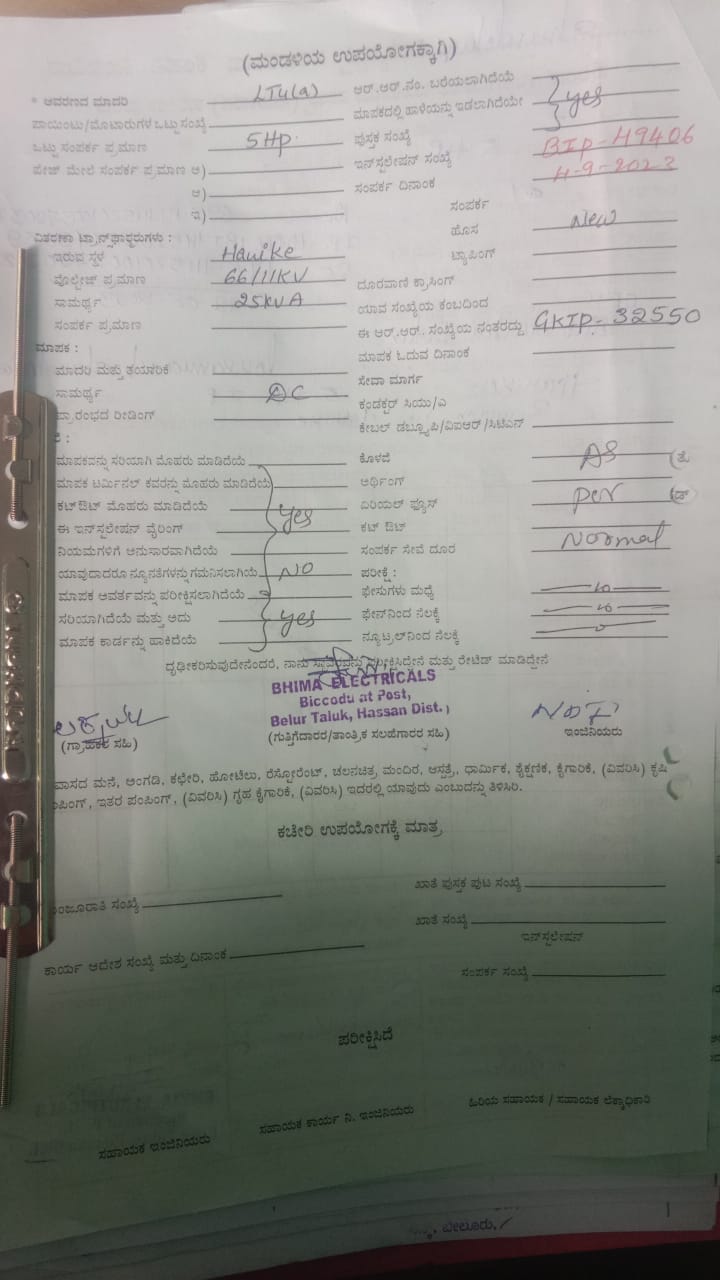 (ಮಂಡಳಿಯ ಉಪಯೋಗಕ್ಕಾಗಿ)
* ಆವರಣದ ಮಾದರಿ LT4(a)
ಆರ್.ಆರ್.ನಂ. ಬರೆಯಲಾಗಿದೆಯೆ
ಪಾಯಿಂಟು/ಮೋಟಾರುಗಳ ಒಟ್ಟು ಸಂಖ್ಯೆ
ಮಾಪಕದಲ್ಲಿ ಹಾಳೆಯನ್ನು ಇಡಲಾಗಿದೆಯೇ yes
ಒಟ್ಟು ಸಂಪರ್ಕ ಪ್ರಮಾಣ 5HP
ಪುಸ್ತಕ ಸಂಖ್ಯೆ
ಪೇಜ್ ಮೇಲೆ ಸಂಪರ್ಕ ಪ್ರಮಾಣ ಅ)
ಇನ್‌ಸ್ಟಲೇಷನ್ ಸಂಖ್ಯೆ BIP-49406
ಆ)
ಸಂಪರ್ಕ ದಿನಾಂಕ 4-9-2023
ಇ)
ಸಂಪರ್ಕ
ವಿತರಣಾ ಟ್ರಾನ್ಸ್‌ಫಾರ್ಮರುಗಳು :
ಹೊಸ New
ಇರುವ ಸ್ಥಳ Hanike
ಟ್ಯಾಪಿಂಗ್
ವೋಲ್ಟೇಜ್ ಪ್ರಮಾಣ 66/11KV
ದೂರವಾಣಿ ಕ್ರಾಸಿಂಗ್
ಸಾಮರ್ಥ್ಯ 25KVA
ಯಾವ ಸಂಖ್ಯೆಯ ಕಂಬದಿಂದ
ಸಂಪರ್ಕ ಪ್ರಮಾಣ
ಈ ಆರ್.ಆರ್. ಸಂಖ್ಯೆಯ ನಂತರದ್ದು GKIP-32550
ಮಾಪಕ :
ಮಾಪಕ ಓದುವ ದಿನಾಂಕ
ಮಾದರಿ ಮತ್ತು ತಯಾರಿಕೆ
ಸೇವಾ ಮಾರ್ಗ
ಸಾಮರ್ಥ್ಯ DC
ಕಂಡಕ್ಟರ್ ಸಿಯು/ಎ
ಪ್ರಾರಂಭದ ರೀಡಿಂಗ್
ಕೇಬಲ್ ಡಬ್ಲ್ಯೂಪಿ/ವಿಐಆರ್/ಸಿಟಿಎನ್
ಮಾಪಕವನ್ನು ಸರಿಯಾಗಿ ಮೊಹರು ಮಾಡಿದೆಯೆ
ಕೊಳವೆ AS
ಮಾಪಕ ಟರ್ಮಿನಲ್ ಕವರನ್ನು ಮೊಹರು ಮಾಡಿದೆಯೆ
ಅರ್ಥಿಂಗ್
ಕಟ್‌ಔಟ್ ಮೊಹರು ಮಾಡಿದೆಯೆ yes
ಏರಿಯಲ್ ಫ್ಯೂಸ್ per
ಈ ಇನ್‌ಸ್ಟಲೇಷನ್ ವೈರಿಂಗ್
ಕಟ್ ಔಟ್
ನಿಯಮಗಳಿಗೆ ಅನುಸಾರವಾಗಿದೆಯೆ
ಸಂಪರ್ಕ ಸೇವೆ ದೂರ Normal
ಯಾವುದಾದರೂ ನ್ಯೂನತೆಗಳನ್ನು ಗಮನಿಸಲಾಗಿಯೆ NO
ಪರೀಕ್ಷೆ :
ಮಾಪಕ ಆವರ್ತವನ್ನು ಪರೀಕ್ಷಿಸಲಾಗಿದೆಯೆ
ಫೇಸುಗಳು ಮಧ್ಯೆ
ಸರಿಯಾಗಿದೆಯೆ ಮತ್ತು ಅದು yes
ಫೇಸ್‌ನಿಂದ ನೆಲಕ್ಕೆ
ಮಾಪಕ ಕಾರ್ಡನ್ನು ಹಾಕಿದೆಯೆ
ನ್ಯೂಟ್ರಲ್‌ನಿಂದ ನೆಲಕ್ಕೆ
ದೃಢೀಕರಿಸುವುದೇನೆಂದರೆ, ನಾನು ಸ್ಥಾವರವನ್ನು ಪರೀಕ್ಷಿಸಿದ್ದೇನೆ ಮತ್ತು ರೇಟಿಡ್ ಮಾಡಿದ್ದೇನೆ
BHIMA ELECTRICALS
Biccodu at Post,
Belur Taluk, Hassan Dist.
(ಗ್ರಾಹಕರ ಸಹಿ)
(ಗುತ್ತಿಗೆದಾರರ/ತಾಂತ್ರಿಕ ಸಲಹೆಗಾರರ ಸಹಿ)
ಇಂಜಿನಿಯರು
ವಾಸದ ಮನೆ, ಅಂಗಡಿ, ಕಛೇರಿ, ಹೋಟೆಲು, ರೆಸ್ಟೋರೆಂಟ್, ಚಲನಚಿತ್ರ ಮಂದಿರ, ಆಸ್ಪತ್ರೆ, ಧಾರ್ಮಿಕ, ಶೈಕ್ಷಣಿಕ, ಕೈಗಾರಿಕೆ, (ವಿವರಿಸಿ) ಕೃಷಿ
ಪಂಪಿಂಗ್, ಇತರ ಪಂಪಿಂಗ್, (ವಿವರಿಸಿ) ಗೃಹ ಕೈಗಾರಿಕೆ, (ವಿವರಿಸಿ) ಇದರಲ್ಲಿ ಯಾವುದು ಎಂಬುದನ್ನು ತಿಳಿಸಿರಿ.
ಕಚೇರಿ ಉಪಯೋಗಕ್ಕೆ ಮಾತ್ರ
ಖಾತೆ ಪುಸ್ತಕ ಪುಟ ಸಂಖ್ಯೆ
ಮಂಜೂರಾತಿ ಸಂಖ್ಯೆ
ಖಾತೆ ಸಂಖ್ಯೆ
ಇನ್‌ಸ್ಟಲೇಷನ್
ಕಾರ್ಯ ಆದೇಶ ಸಂಖ್ಯೆ ಮತ್ತು ದಿನಾಂಕ
ಸಂಪರ್ಕ ಸಂಖ್ಯೆ
ಪರೀಕ್ಷಿಸಿದೆ
ಸಹಾಯಕ ಇಂಜಿನಿಯರು
ಸಹಾಯಕ ಕಾರ್ಯ ನಿ. ಇಂಜಿನಿಯರು
ಹಿರಿಯ ಸಹಾಯಕ / ಸಹಾಯಕ ಲೆಕ್ಕಾಧಿಕಾರಿ
ಬೇಲೂರು.